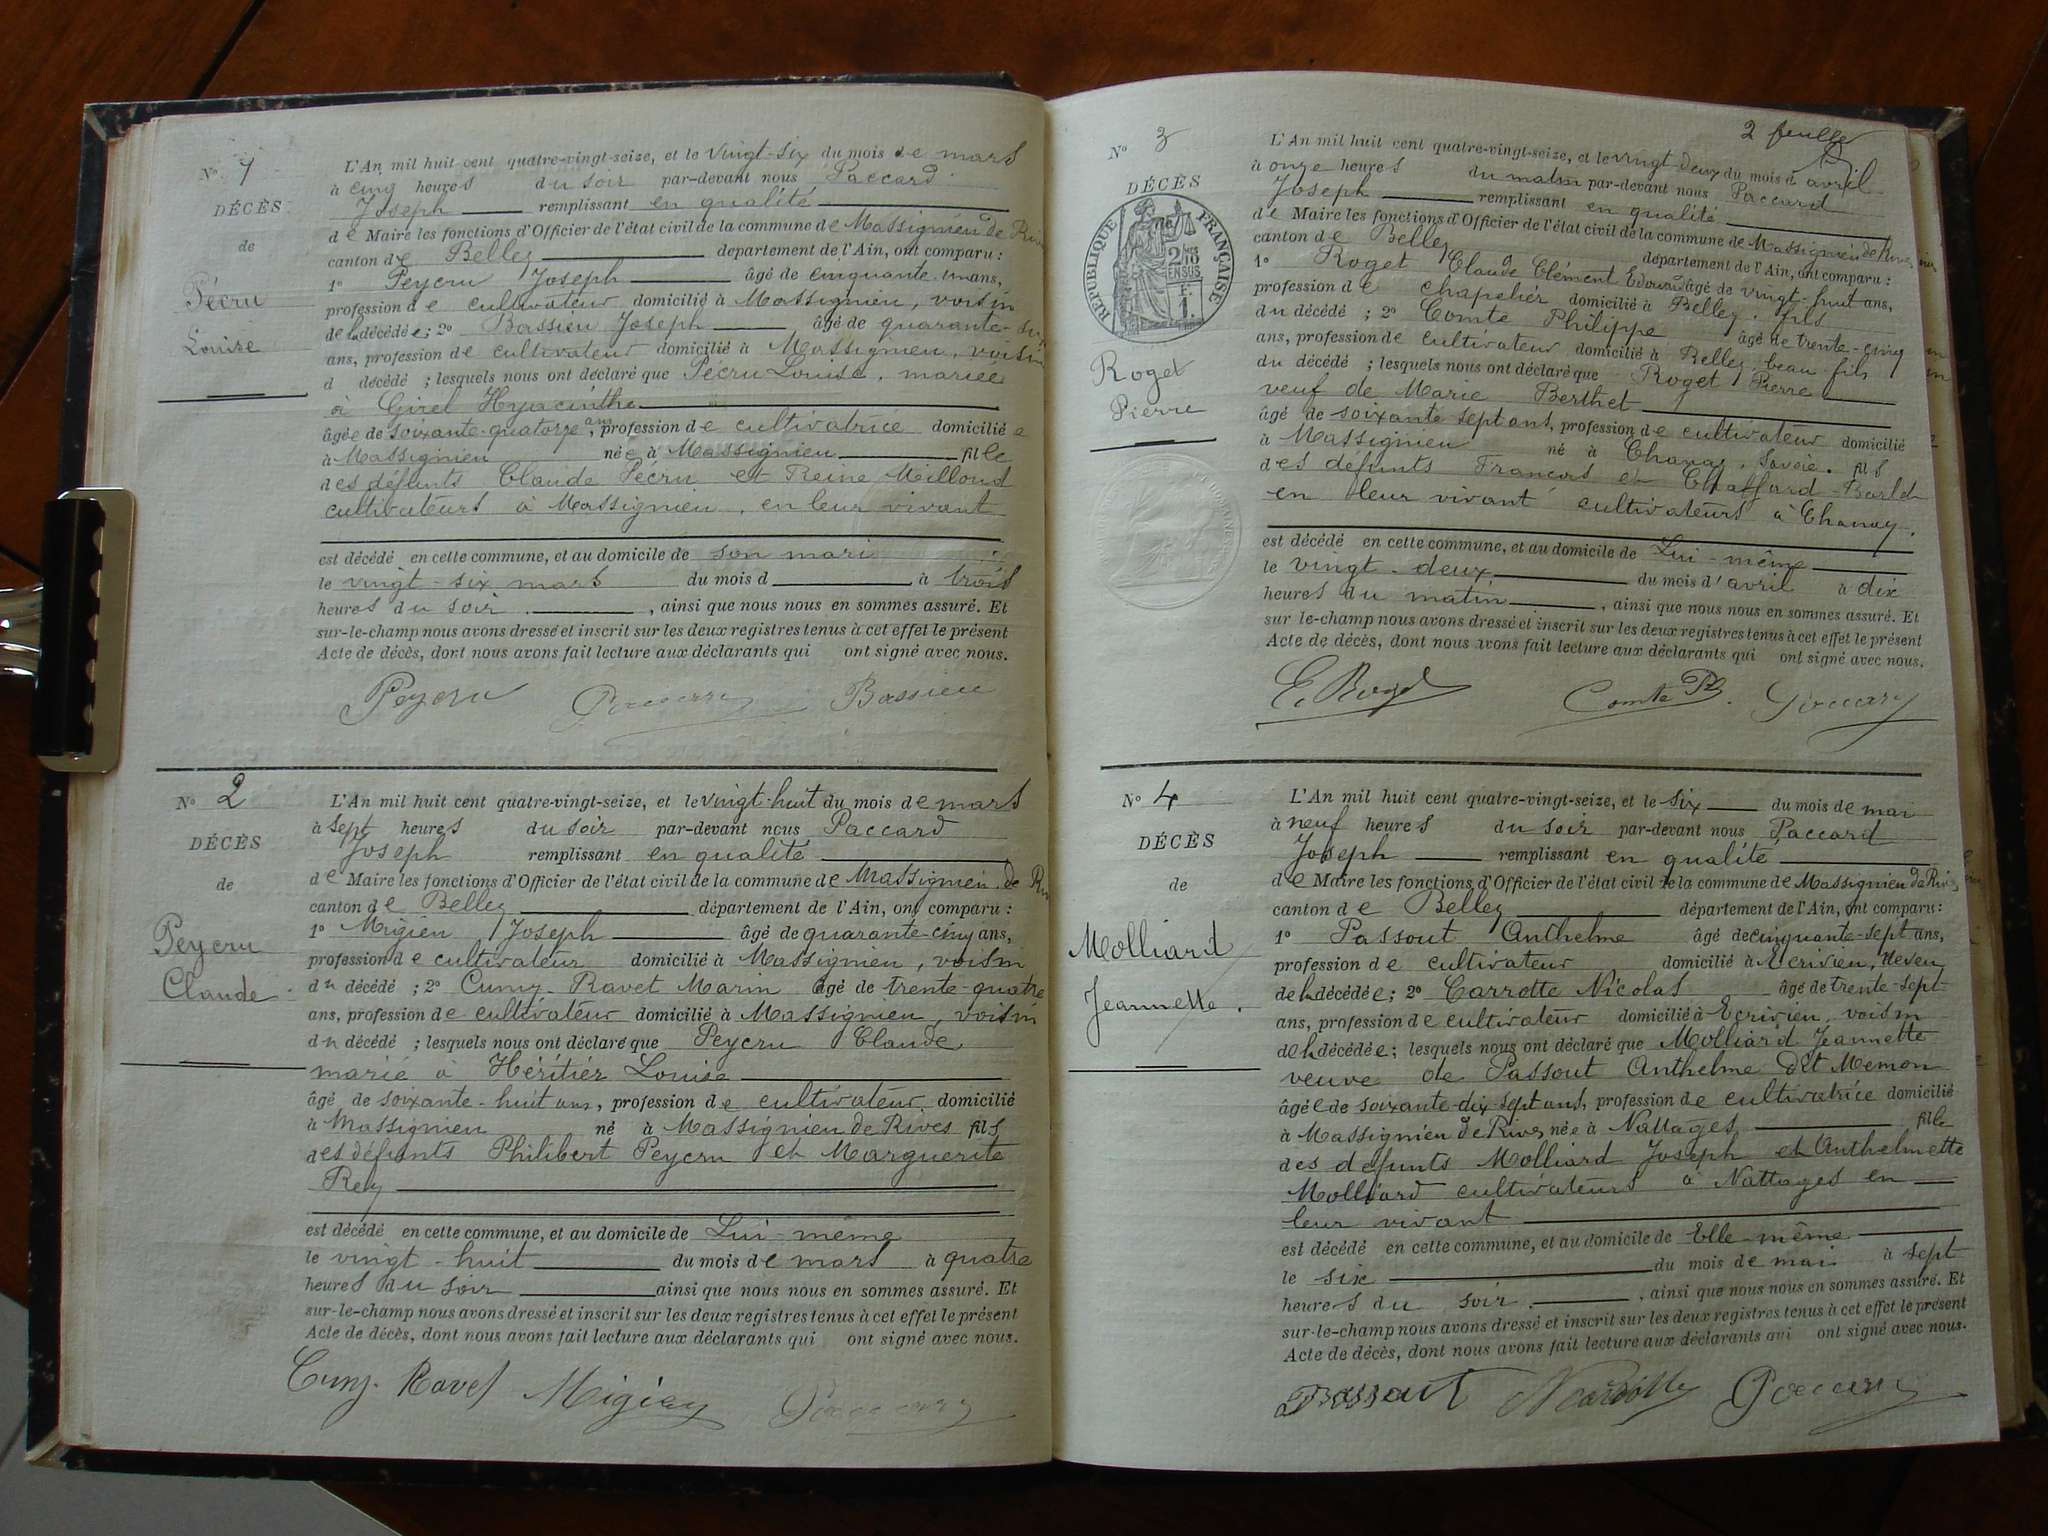 N° 1
DÉCÈS
de
Pécru
Louise
L'An mil huit cent quatre-vingt-seize, et le vingt-six du mois de mars
à cinq heures du soir par-devant nous Paccard
Joseph remplissant en qualité
de Maire les fonctions d'Officier de l'état civil de la commune de Massignieu de Rives
canton de Belley département de l'Ain, ont comparu :
1° Peycru Joseph âgé de cinquante-un ans,
profession de cultivateur domicilié à Massignieu, voisin
de la décédée ; 2° Bassieu Joseph âgé de quarante-six
ans, profession de cultivateur domicilié à Massignieu, voisin
d décédé ; lesquels nous ont déclaré que Pécru Louise, mariée
à Girel Hyacinthe
âgée de soixante-quatorze ans, profession de cultivatrice domiciliée
à Massignieu née à Massignieu fille
des défunts Claude Pécru et Reine Milloud
cultivateurs à Massignieu, en leur vivant
est décédé en cette commune, et au domicile de son mari
le vingt-six mars du mois d à trois
heures du soir, ainsi que nous nous en sommes assuré. Et
sur-le-champ nous avons dressé et inscrit sur les deux registres tenus à cet effet le présent
Acte de décès, dont nous avons fait lecture aux déclarants qui ont signé avec nous.
Peycru Paccard Bassieu
N° 2
DÉCÈS
de
Peycru
Claude
L'An mil huit cent quatre-vingt-seize, et le vingt-huit du mois de mars
à sept heures du soir par-devant nous Paccard
Joseph remplissant en qualité
de Maire les fonctions d'Officier de l'état civil de la commune de Massignieu de Rives
canton de Belley département de l'Ain, ont comparu :
1° Migieu Joseph âgé de quarante-cinq ans,
profession de cultivateur domicilié à Massignieu, voisin
du décédé ; 2° Cuny-Ravet Marin âgé de trente-quatre
ans, profession de cultivateur domicilié à Massignieu, voisin
du décédé ; lesquels nous ont déclaré que Peycru Claude
marié à Héritier Louise
âgé de soixante-huit ans, profession de cultivateur domicilié
à Massignieu né à Massignieu de Rives fils
des défunts Philibert Peycru et Marguerite
Rey
est décédé en cette commune, et au domicile de Lui-même
le vingt-huit du mois de mars à quatre
heures du soir ainsi que nous nous en sommes assuré. Et
sur-le-champ nous avons dressé et inscrit sur les deux registres tenus à cet effet le présent
Acte de décès, dont nous avons fait lecture aux déclarants qui ont signé avec nous.
Cuny-Ravet Migieu Paccard
2 feuille
N° 3
DÉCÈS
de
RÉPUBLIQUE FRANÇAISE
2/10 EN SUS
1
Roget
Pierre
L'An mil huit cent quatre-vingt-seize, et le vingt-deux du mois d avril
à onze heures du matin par-devant nous Paccard
Joseph remplissant en qualité
de Maire les fonctions d'Officier de l'état civil de la commune de Massignieu de Rives
canton de Belley département de l'Ain, ont comparu :
1° Roget Claude Clément Edouard âgé de vingt-huit ans,
profession de chapelier domicilié à Belley, fils
du décédé ; 2° Comte Philippe âgé de trente-cinq
ans, profession de cultivateur domicilié à Belley beau-fils
du décédé ; lesquels nous ont déclaré que Roget Pierre
veuf de Marie Berthet
âgé de soixante sept ans, profession de cultivateur domicilié
à Massignieu né à Chanay, Savoie. fils
des défunts François et Chaffard
en leur vivant cultivateurs à Chanay.
est décédé en cette commune, et au domicile de Lui-même
le vingt-deux du mois d'avril à dix
heures du matin, ainsi que nous nous en sommes assuré. Et
sur le-champ nous avons dressé et inscrit sur les deux registres tenus à cet effet le présent
Acte de décès, dont nous avons fait lecture aux déclarants qui ont signé avec nous.
E. Roget Comte Ph. Paccard
N° 4
DÉCÈS
de
Molliard
Jeannette.
L'An mil huit cent quatre-vingt-seize, et le six du mois de mai
à neuf heures du soir par-devant nous Paccard
Joseph remplissant en qualité
de Maire les fonctions d'Officier de l'état civil de la commune de Massignieu de Rives
canton de Belley département de l'Ain, ont comparu :
1° Passout Anthelme âgé de cinquante-sept ans,
profession de cultivateur domicilié à Ecrivieu, neveu
de la décédée ; 2° Carrotte Nicolas âgé de trente-sept
ans, profession de cultivateur domicilié à Ecrivieu, voisin
de la décédée ; lesquels nous ont déclaré que Molliard Jeannette
veuve de Passout Anthelme dit Memon
âgée de soixante-dix-sept ans, profession de cultivatrice domicilié
à Massignieu de Rives née à Nattages fille
des défunts Molliard Joseph et Anthelmette
Molliard cultivateurs à Nattages en
leur vivant
est décédé en cette commune, et au domicile de Elle-même
le six du mois de mai à sept
heures du soir, ainsi que nous nous en sommes assuré. Et
sur-le-champ nous avons dressé et inscrit sur les deux registres tenus à cet effet le présent
Acte de décès, dont nous avons fait lecture aux déclarants qui ont signé avec nous.
Passout Paccard